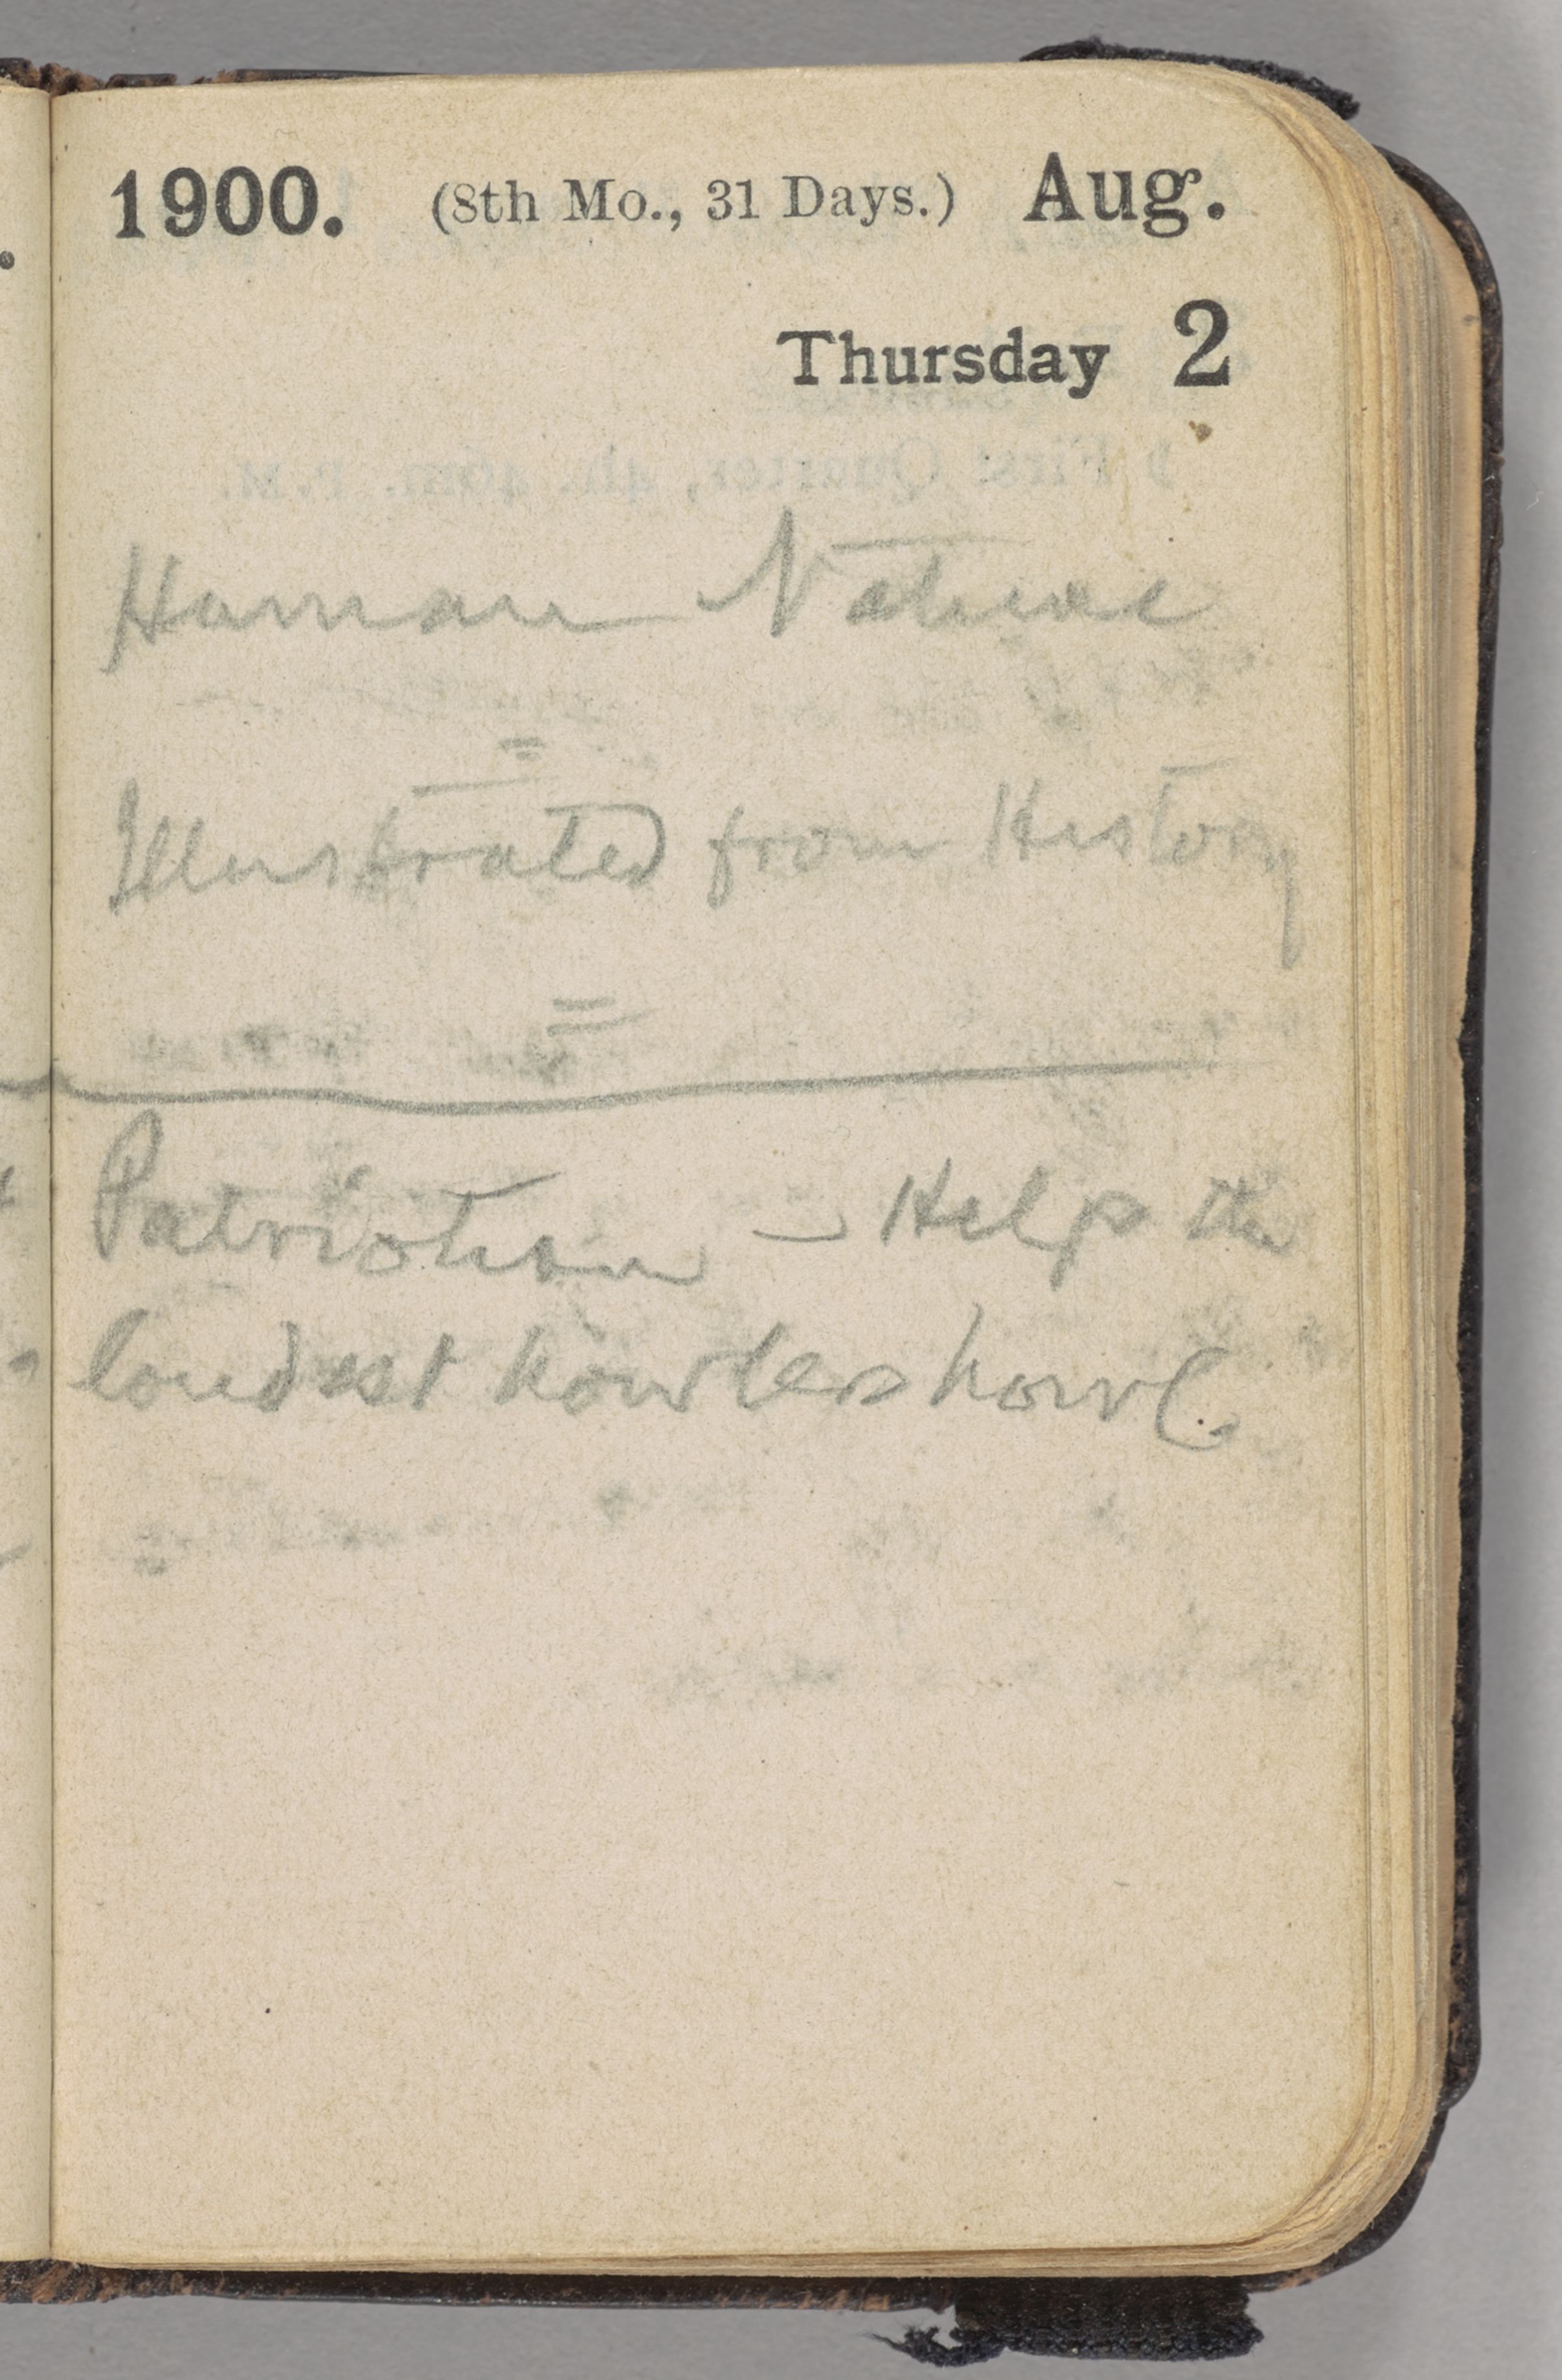 1900. (8th Mo., 31 Days.) Aug.
Thursday 2
Human Nature
=
Illustrated from History
=
Patriotism - Help the
loudest howlers howl.